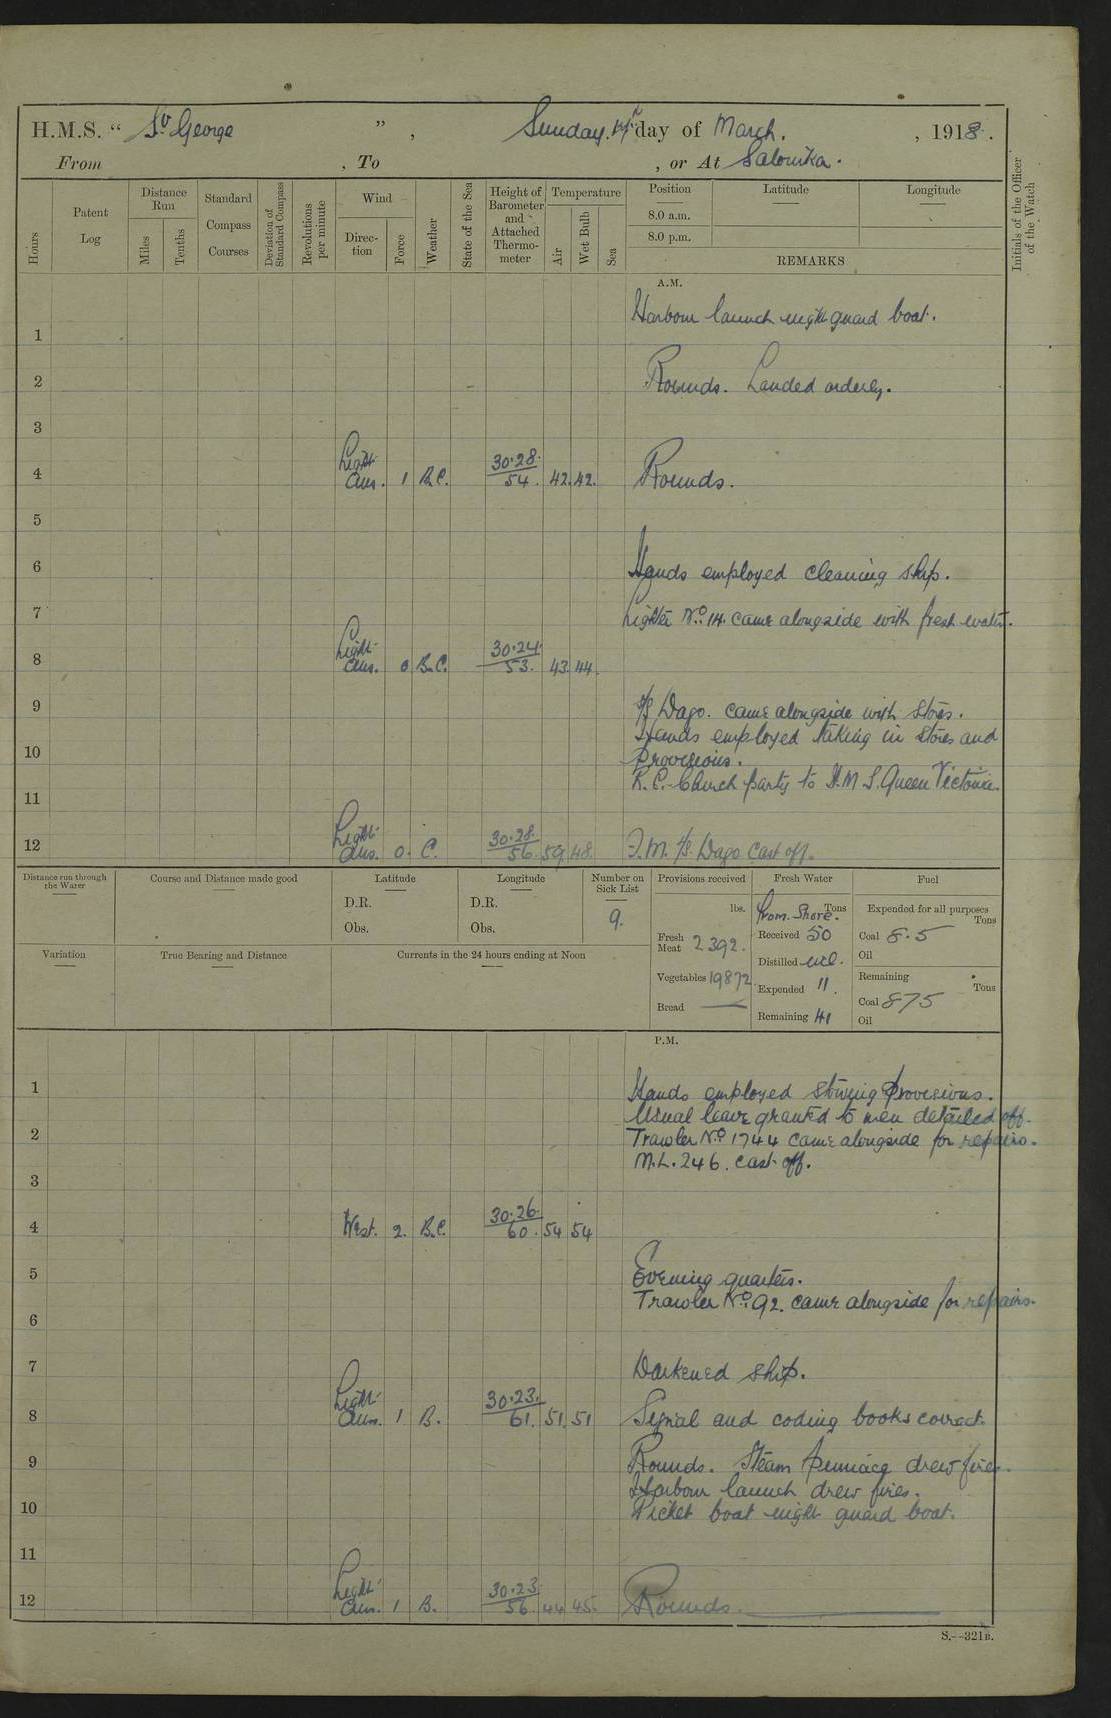 H.M.S. " St George ", Sunday. 17th day of March. , 1918.
From , To , or At Salonika.
Hours
Patent Log
Distance Run
Miles
Tenths
Standard Compass Courses
Deviation of Standard Compass
Revolutions per minute
Wind
Direction
Force
Weather
State of the Sea
Height of Barometer and Attached Thermometer
Temperature
Air
Wet Bulb
Sea
Position
8.0 a.m.
8.0 p.m.
Latitude
Longitude
REMARKS
Initials of the Officer of the Watch
A.M.
Harbour launch night guard boat.
1
2 Rounds. Landed orderly.
3
4 Light Airs. 1 B.C. 30.28. 54. 42. 42. Rounds.
5
6 Hands employed cleaning ship.
7 Lighter No. 14. came alongside with fresh water.
8 Light Airs. 0 B.C. 30.24. 53. 43. 44.
9 S/S Dago. came alongside with stores.
Hands employed taking in stores and
10 Provisions.
R.C. Church party to H.M.S. Queen Victoria.
11
12 Light Airs. 0. C. 30.28. 56. 59. 48. S/S. Dago cast off.
Distance run through the Water
Course and Distance made good
Latitude
D.R.
Obs.
Longitude
D.R.
Obs.
Number on Sick List
9.
Provisions received
lbs.
Fresh Meat 2392.
Vegetables 19872
Bread —
Fresh Water
Tons
From Shore.
Received 50
Distilled nil.
Expended 11.
Remaining 41
Fuel
Expended for all purposes
Tons
Coal 8.5
Oil
Remaining
Tons
Coal 875
Oil
Variation
True Bearing and Distance
Currents in the 24 hours ending at Noon
P.M.
1 Hands employed stowing Provisions.
Usual leave granted to men detailed off.
2 Trawler No. 1744 came alongside for repairs.
M.L. 246. cast off.
3
4 West. 2. B.C. 30.26. 60. 54 54
5 Evening quarters.
Trawler No. 92. came alongside for repairs.
6
7 Darkened ship.
8 Light Airs. 1 B. 30.23. 61. 51. 51 Signal and coding books correct.
9 Rounds. Steam pinnace drew fires.
Harbour launch drew fires.
10 Picket boat night guard boat.
11
12 Light Airs. 1 B. 30.23 56 44 45. Rounds.
S.—321B.